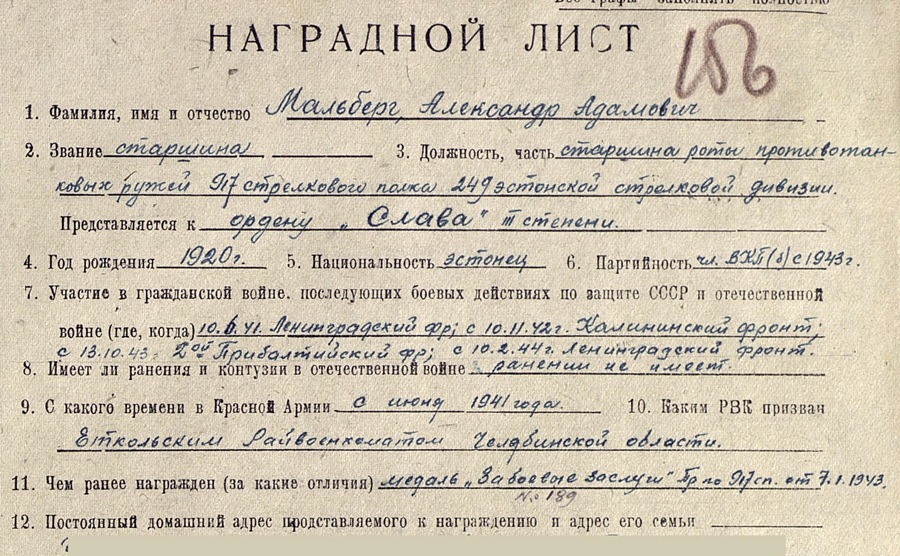 Все графы заполнять полностью
НАГРАДНОЙ ЛИСТ
156
1. Фамилия, имя и отчество Мальберг, Александр Адамович
2. Звание старшина 3. Должность, часть старшина роты противотан-
ковых ружей 917 стрелкового полка 249 эстонской стрелковой дивизии.
Представляется к ордену „Слава" III степени.
4. Год рождения 1920г. 5. Национальность эстонец 6. Партийность чл. ВКП(б) с 1943г.
7. Участие в гражданской войне. последующих боевых действиях по защите СССР и отечественной
войне (где, когда) 10.6.41. Ленинградский фр; с 10.11.42г. Калининский фронт;
с 13.10.43г 2ой Прибалтийский фр; с 10.2.44г. Ленинградский фронт.
8. Имеет ли ранения и контузии в отечественной войне ранений не имеет.
9. С какого времени в Красной Армии с июня 1941 года. 10. Каким РВК призван
Еткольским Райвоенкоматом Челябинской области.
11. Чем ранее награжден (за какие отличия) медаль „За боевые заслуги" Пр по 917 сп. от 7.1.1943.
№ 189
12. Постоянный домашний адрес представляемого к награждению и адрес его семьи